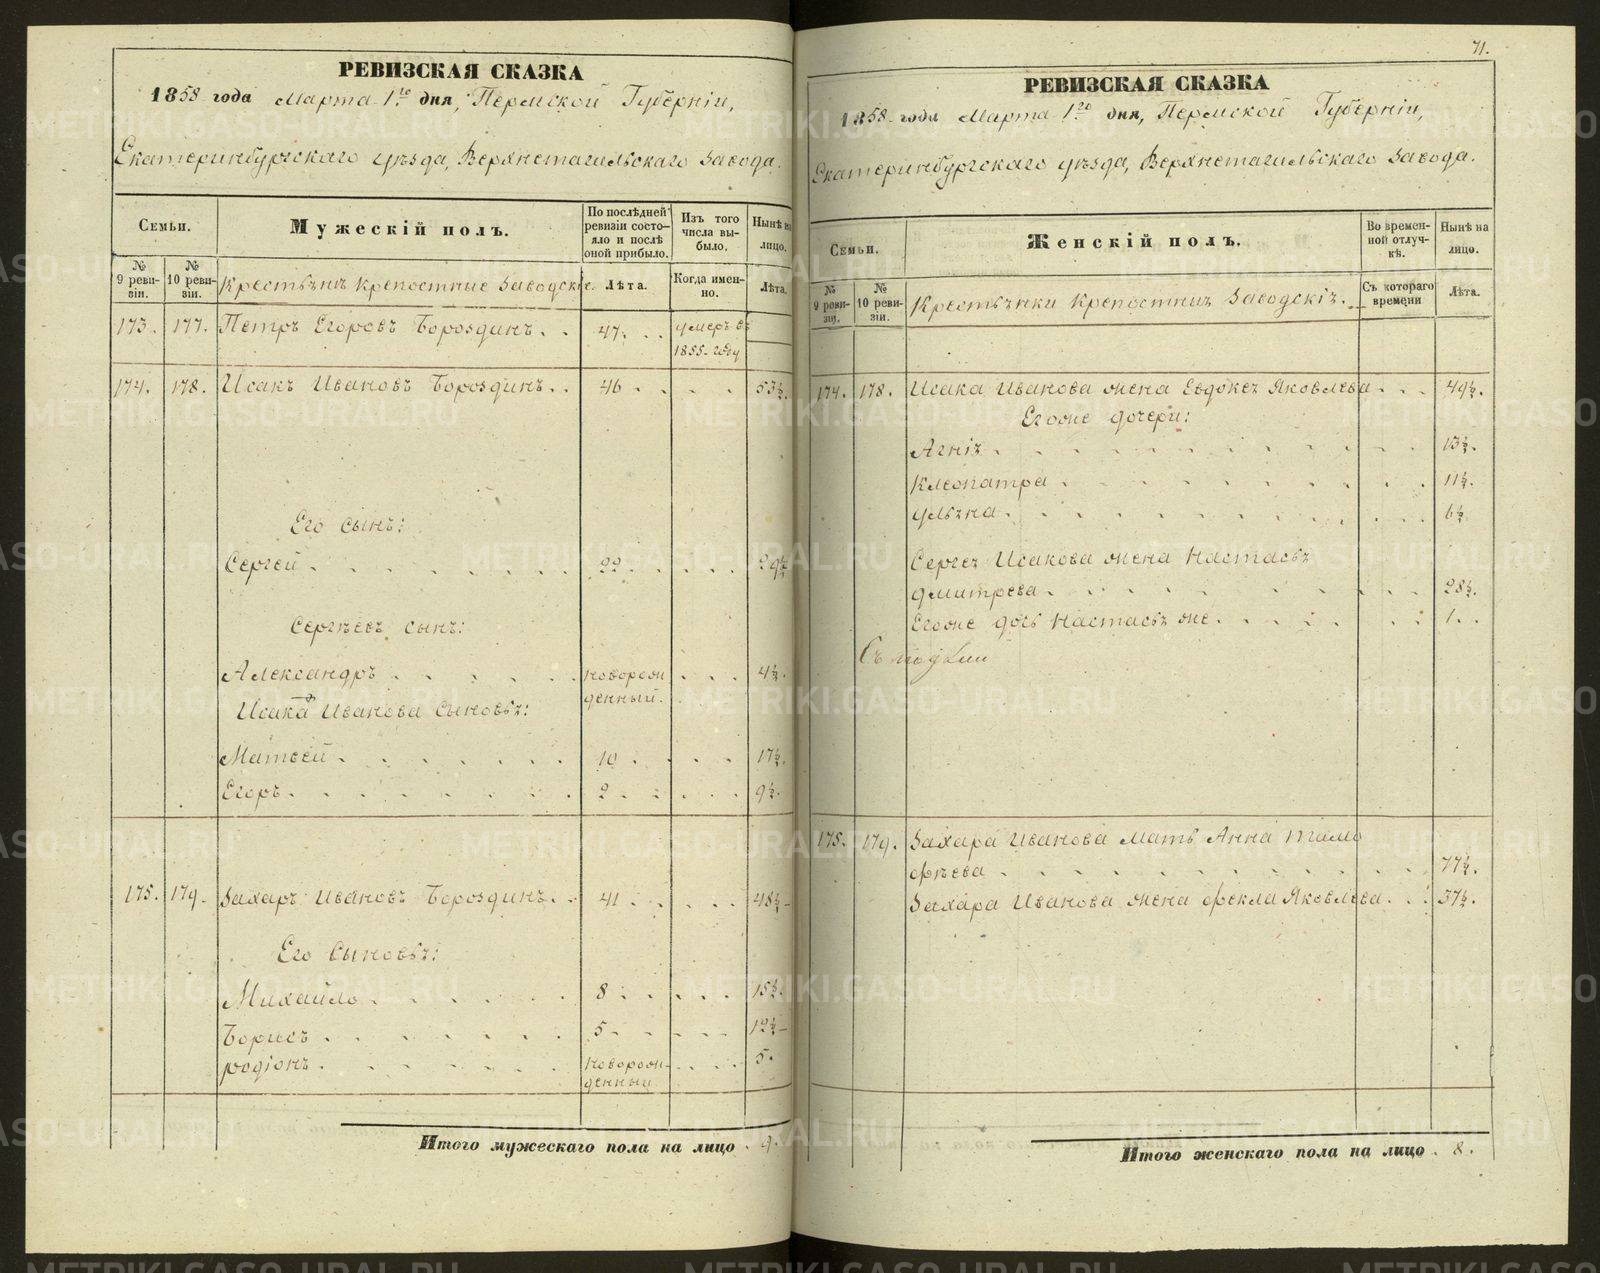 РЕВИЗСКАЯ СКАЗКА
1858 года Марта 1го дня, Пермской Губерніи,
Екатеринбургскаго уѣзда, Верхнетагильскаго завода.
Семьи.
Мужескій полъ.
По послѣдней ревизіи состояло и послѣ оной прибыло.
Изъ того числа выбыло.
Нынѣ на лицо.
№ 9 ревизіи.
№ 10 ревизіи.
Крестьянъ крепостные заводскіе.
Лѣта.
Когда именно.
Лѣта.
173. 177. Петръ Егоровъ Бороздинъ. . 47. . . умеръ въ
1855 году
174. 178. Исакъ Ивановъ Бороздинъ. . 46 . . . . 53½.
Его сынъ:
Сергей . . . . . . . 22 . . . . 29½
Сергѣевъ сынъ:
Александръ . . . . . новорож . . . 4½.
денный.
Исака Иванова сыновья:
Матвей . . . . . . 10 . . . . 17½.
Егоръ . . . . . . . 2 . . . . . 9½.
175. 179. Захаръ Ивановъ Бороздинъ. . 41 . . . . . 48½
Его сыновья:
Михайло . . . . . . 8 . . . . . 15½.
Борисъ . . . . . . 5 . . . . . 12½
родіонъ . . . . . . новорож . . . . 5.
денный
Итого мужескаго пола на лицо . 9.
71.
РЕВИЗСКАЯ СКАЗКА
1858 года Марта 1го дня, Пермской Губерніи,
Екатеринбургскаго уѣзда, Верхнетагильскаго завода.
Семьи.
Женскій полъ.
Во временной отлучкѣ.
Нынѣ на лицо.
№ 9 ревизіи.
№ 10 ревизіи.
Крестьянки крепостныя заводскія.
Съ котораго времени
Лѣта.
174. 178. Исака Иванова жена Евдокея Яковлева . . . 49½.
Егоже дочери:
Агнія . . . . . . . . . . . 13½.
Клеопатра . . . . . . . . . . 11½.
ульяна . . . . . . . . . . . 6½
Сергея Исакова жена Настасья
дмитрева . . . . . . . . . . 28½.
Егоже дочь Настасья же . . . . . . . 1. .
175. 179. Захара Иванова мать Анна тимо
фѣева . . . . . . . . . . . 77½.
Захара Иванова жена фекла Яковлева . . . 37½.
Итого женскаго пола на лицо . 8.
METRIKI.GASO-URAL.RU